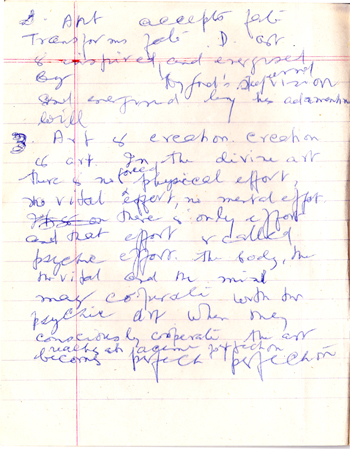 2. Art accepts fate
Transforms fate D. art
is inspired and energised
by God's vision
and energised by his adamantine
will
3. Art is creation. Creation
is art. In the divine art
there is no forced physical effort,
no vital effort, no mental effort
there is only effort
and that effort is called
psychic effort. the body, the
the vital and the mind
may cooperate with the
psychic art when they
consciously cooperate the art
reaches perfection
becomes perfect perfection